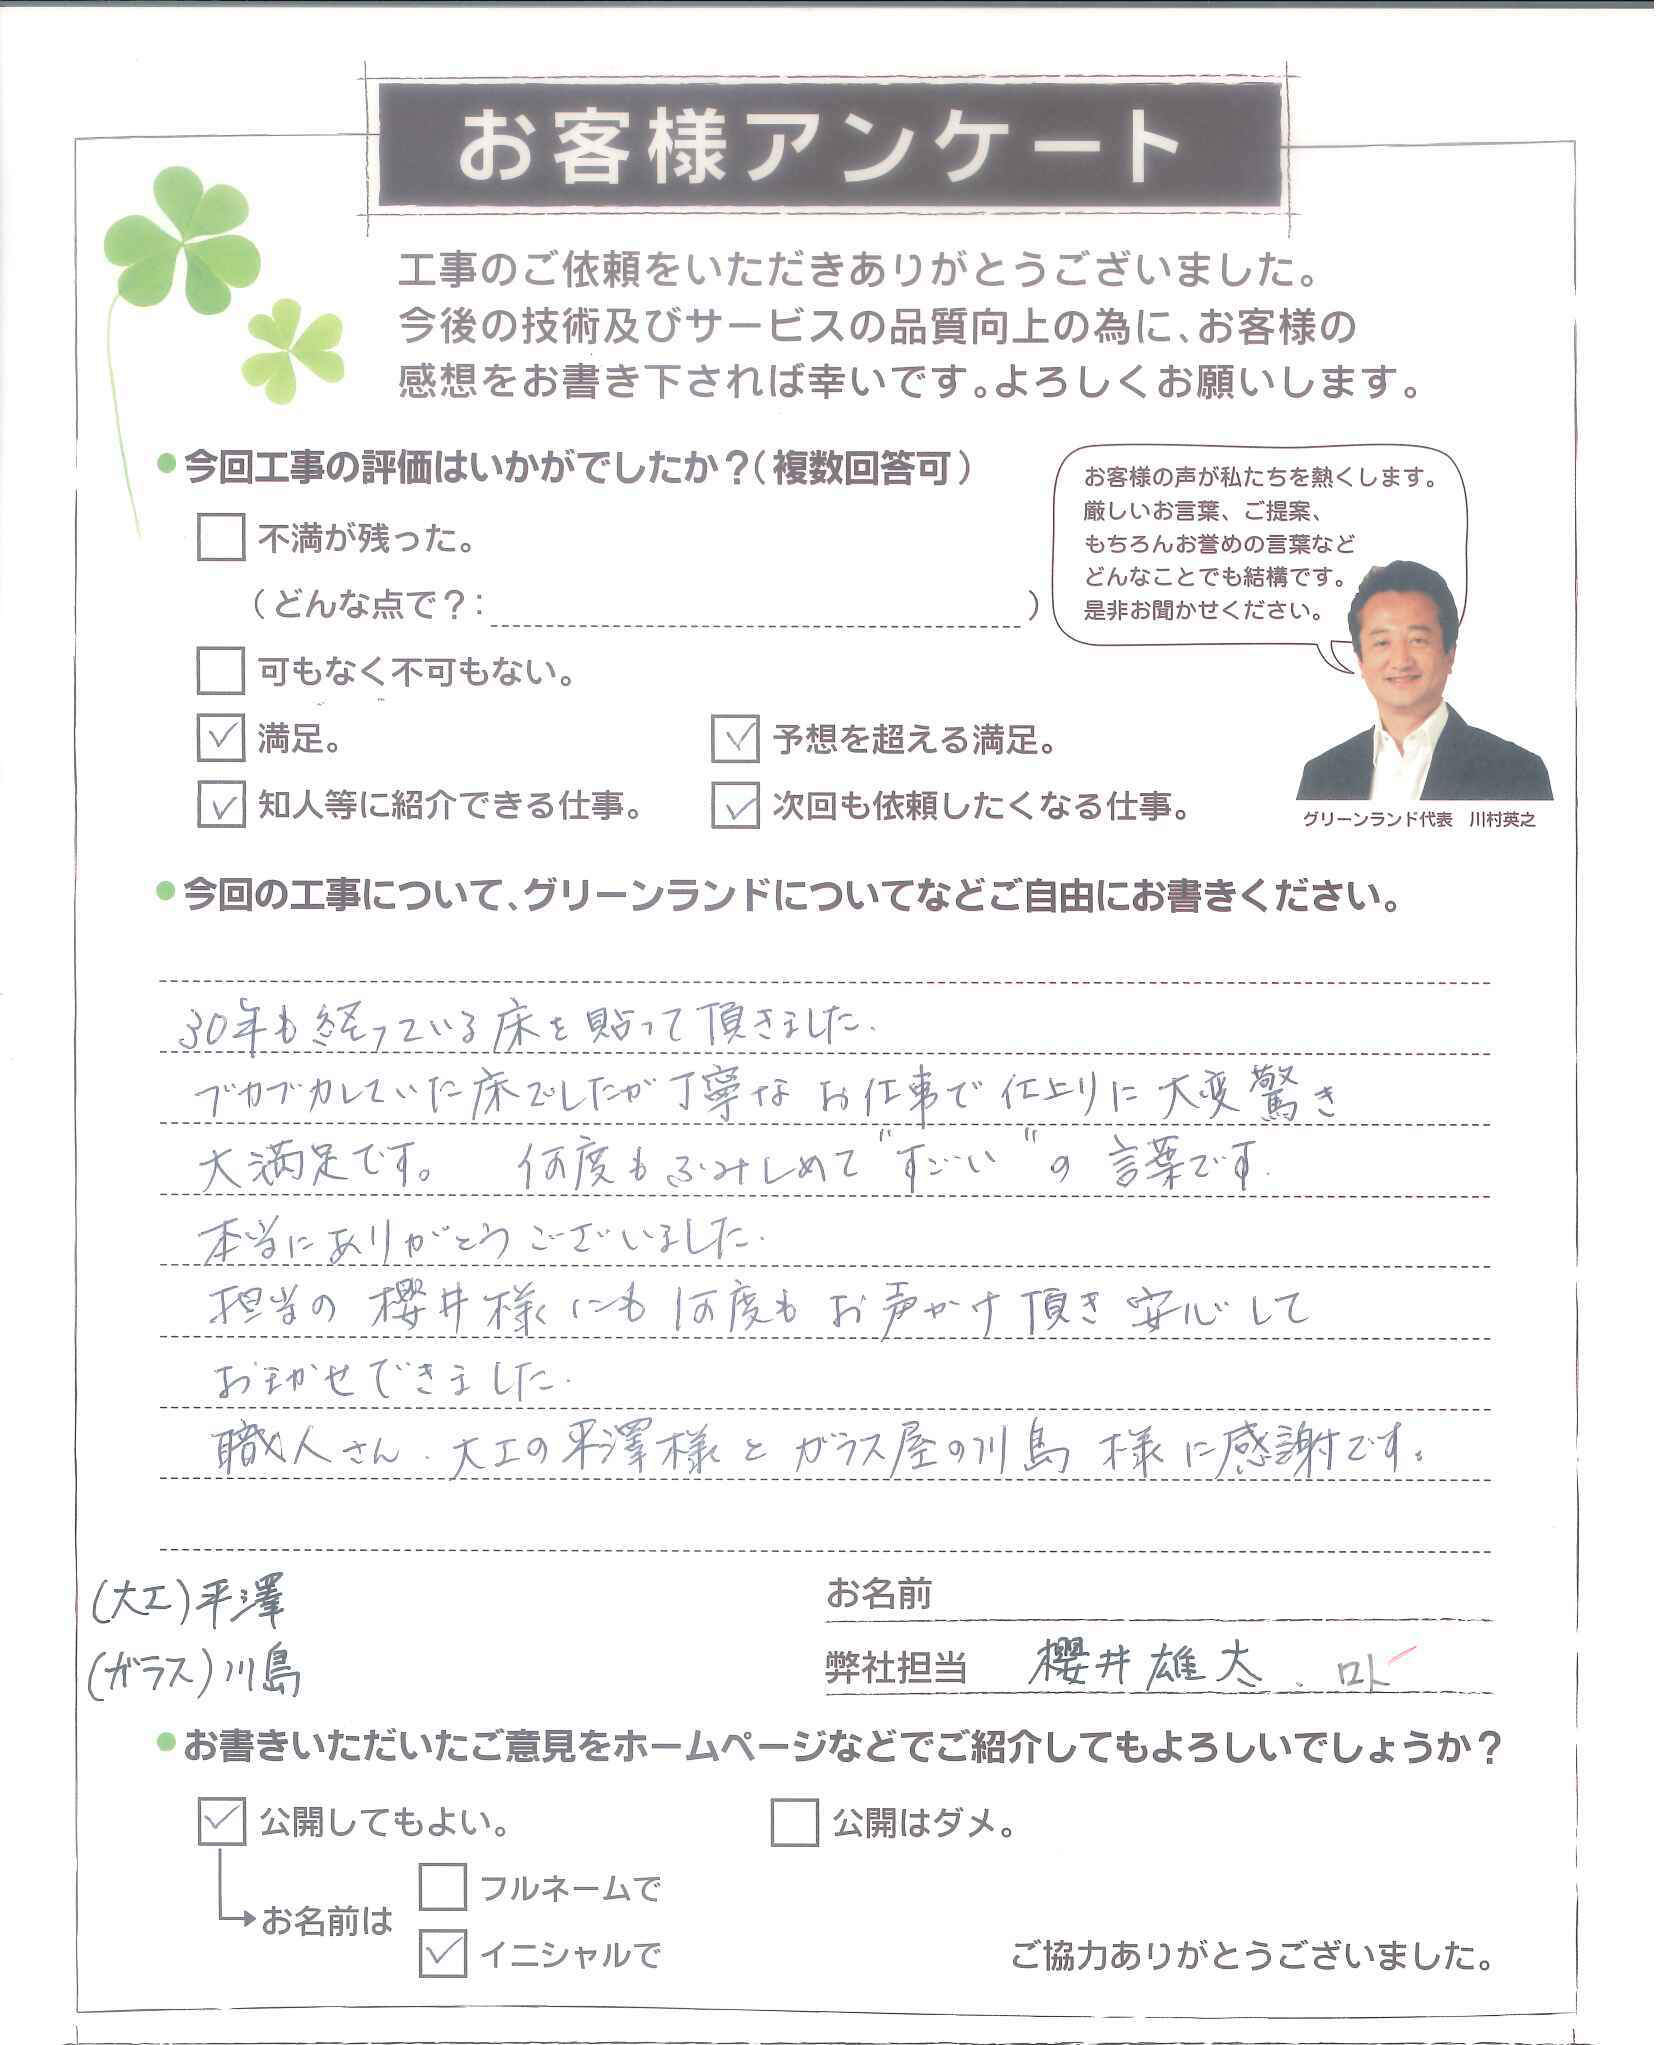 お客様アンケート
工事のご依頼をいただきありがとうございました。
今後の技術及びサービスの品質向上の為に、お客様の
感想をお書き下されば幸いです。よろしくお願いします。
今回工事の評価はいかがでしたか?(複数回答可)
不満が残った。
(どんな点で?: )
可もなく不可もない。
満足。
予想を超える満足。
知人等に紹介できる仕事。
次回も依頼したくなる仕事。
お客様の声が私たちを熱くします。
厳しいお言葉、ご提案、
もちろんお誉めの言葉など
どんなことでも結構です。
是非お聞かせください。
グリーンランド代表 川村英之
今回の工事について、グリーンランドについてなどご自由にお書きください。
30年も経っている床を貼って頂きました.
ブカブカしていた床でしたが丁寧な お仕事で 仕上りに 大変 驚き
大満足です。 何度もふみしめて "すごい" の 言葉です.
本当にありがとうございました.
担当の 櫻井様にも 何度も お声かけ 頂き 安心して
おまかせできました.
職人さん. 大工の平澤様と ガラス屋の川島 様に感謝です。
(大工)平澤
(ガラス)川島
お名前
弊社担当 櫻井雄大
お書きいただいたご意見をホームページなどでご紹介してもよろしいでしょうか?
公開してもよい。
公開はダメ。
お名前は
フルネームで
イニシャルで
ご協力ありがとうございました。